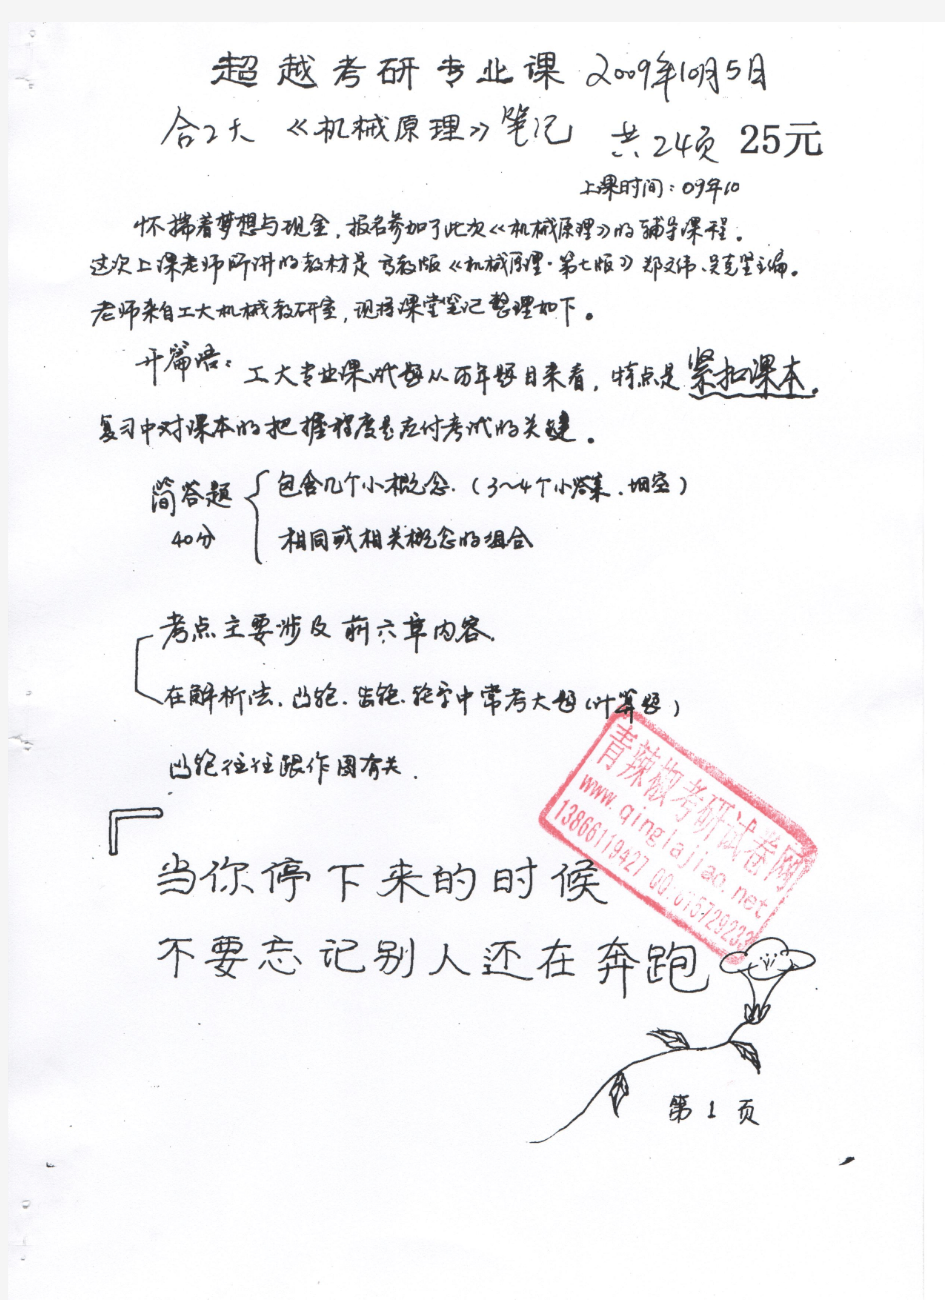 超越考研专业课 2009年10月5日
合工大《机械原理》笔记 共24页 25元
上课时间：09年10
怀揣着梦想与现金，报名参加了此次《机械原理》的辅导课程。
这次上课老师所讲的教材是高教版《机械原理·第七版》郑文伟、吴克坚主编。
老师来自工大机械教研室，现将课堂笔记整理如下。
开篇语：工大专业课试题从历年题目来看，特点是紧扣课本。
复习中对课本的把握程度是应付考试的关键。
简答题 包含几个小概念.（3～4个小答案、填空）
40分 相同或相关概念的组合
考点主要涉及前六章内容.
在解析法、凸轮、齿轮、轮系中常考大题（计算题）
凸轮往往跟作图有关.
青辣椒考研试卷网
www.qinglajiao.net
13866119427 QQ:675729233
当你停下来的时候
不要忘记别人还在奔跑
第1页